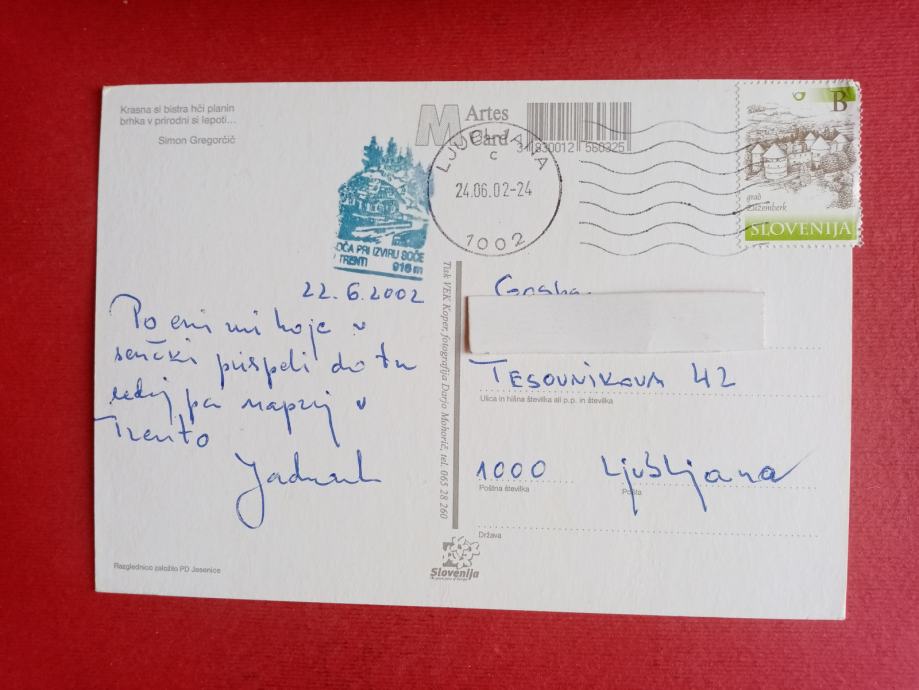 Krasna si bistra hči planin
brhka v prirodni si lepoti...
Simon Gregorčič
M Artes
Card
3 830012 580325
LJUBLJANA
C
24.06.02-24
1002
B
grad
Žužemberk
SLOVENIJA
KOČA PRI IZVIRU SOČE
V TRENTI 916 m
22.6.2002
Po eni mi hoje v
senčki prispeli do tu
sedaj pa naprej v
Trento
Tisk VEK Koper, fotografija Darjo Mohorič, tel. 065 28 260
Gospa
TESOVNIKOVA 42
Ulica in hišna številka ali p.p. in številka
1000 Ljubljana
Poštna številka Pošta
Država
Slovenija
Razglednico založilo PD Jesenice